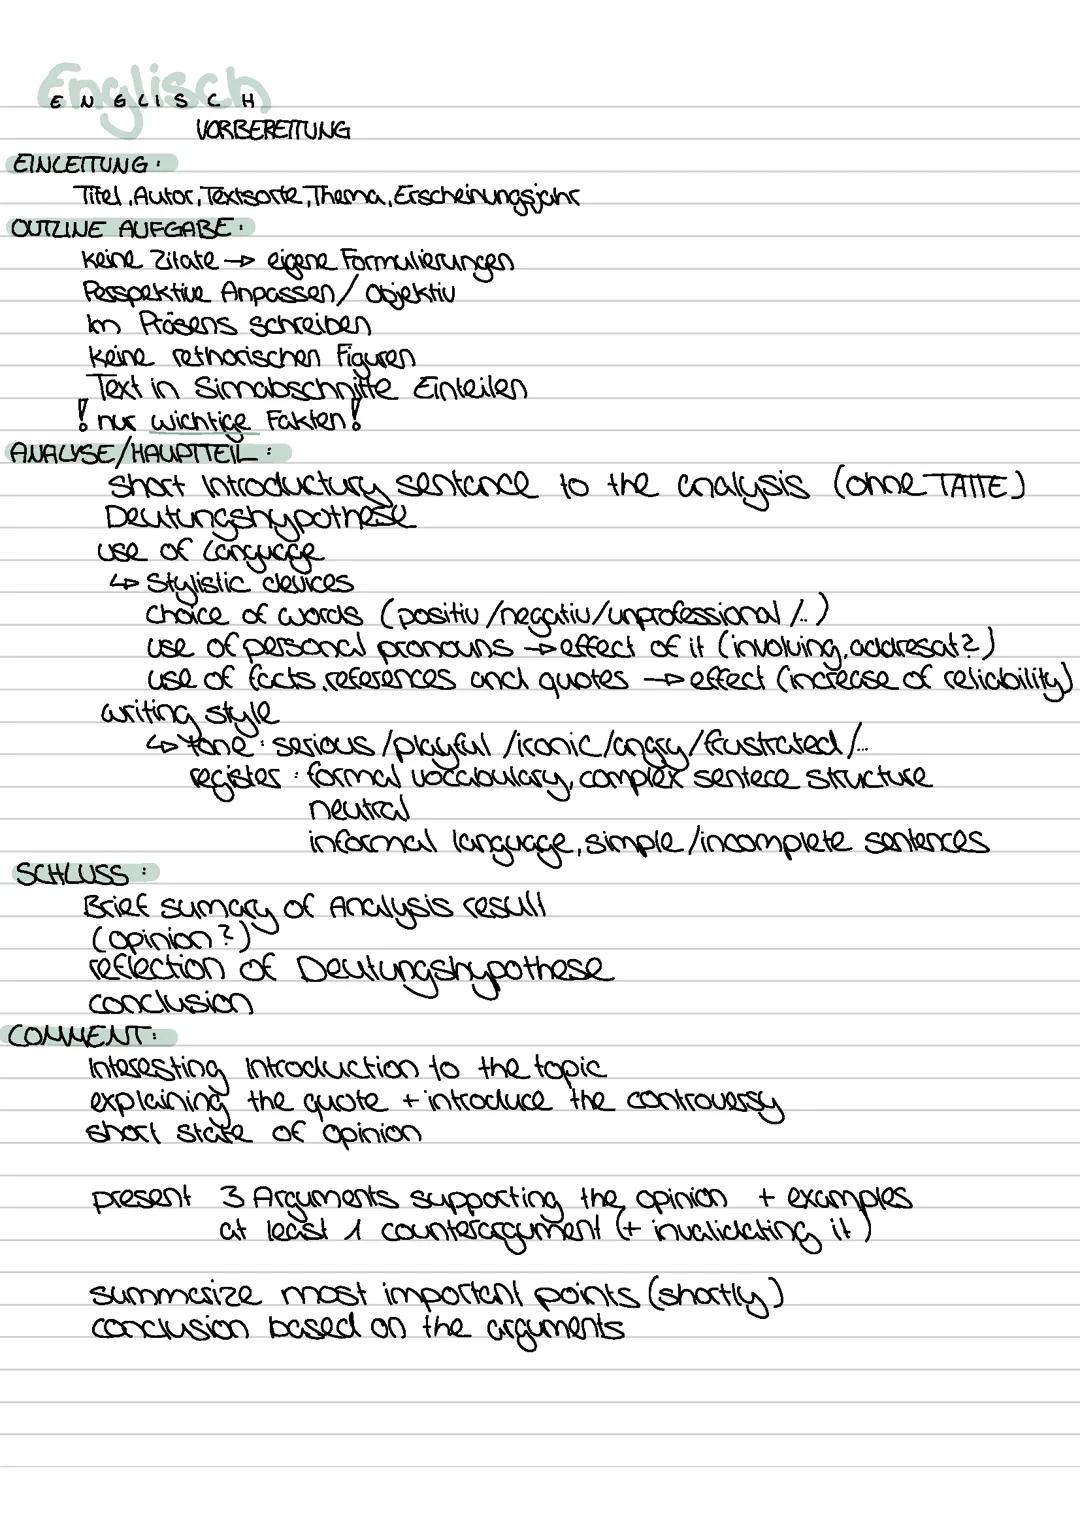 Englisch
ENGLISCH
VORBEREITUNG
EINLEITUNG:
Titel, Autor, Textsorte, Thema, Erscheinungsjahr
OUTLINE AUFGABE:
keine Zitate → eigene Formulierungen
Perspektive Anpassen/ Objektiv
Im Präsens schreiben
keine rethorischen Figuren
Text in Sinnabschnitte Einteilen
! nur wichtige Fakten!
ANALYSE/HAUPTTEIL:
short introductury sentence to the analysis (ohne TATTE)
Deutungshypothese
use of language
↳ Stylistic devices
choice of words (positiv/negativ/unprofessional/..)
use of personal pronouns → effect of it (involving, addresat?)
use of facts, references and quotes → effect (increase of reliability)
writing style
↳ tone: serious/playful/ironic/angry/frustrated/...
register: formal vocabulary, complex sentece structure
neutral
informal language, simple/incomplete sentences
SCHLUSS:
Brief sumary of Analysis result
(opinion?)
reflection of Deutungshypothese
conclusion
COMMENT:
Interesting introduction to the topic
explaining the quote + introduce the controversy
short state of opinion
present 3 Arguments supporting the opinion + examples
at least 1 counterargument (+ invalidating it)
summarize most important points (shortly)
conclusion based on the arguments